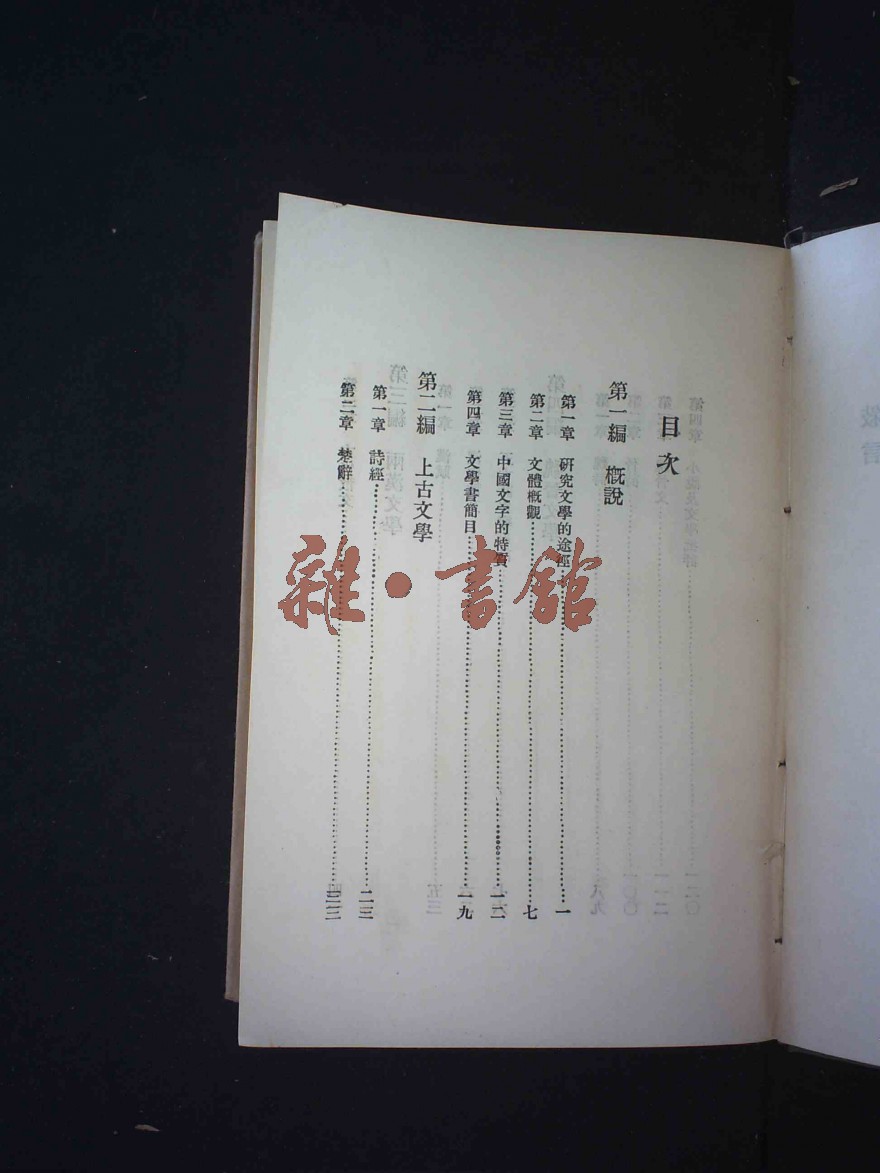 目次
第一編 概說
第一章 研究文學的途徑……一
第二章 文體概觀……七
第三章 中國文字的特質……一二
第四章 文學書簡目……一九
第二編 上古文學
第一章 詩經……二三
第二章 楚辭……
雜·書館